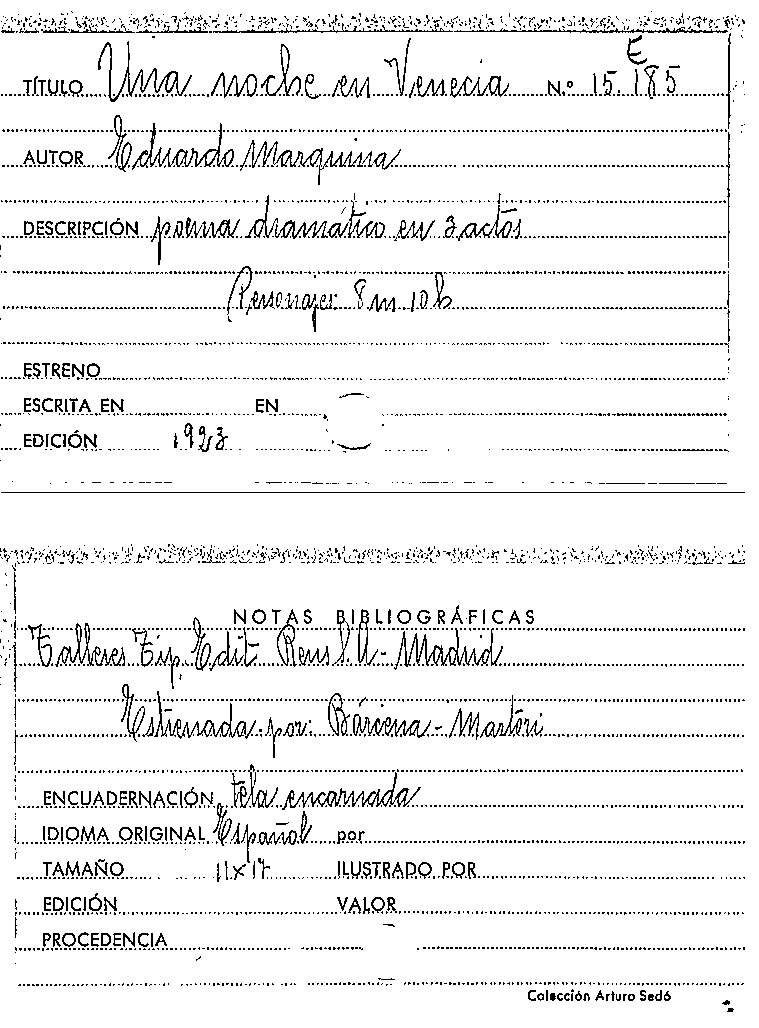 E
TÍTULO Una noche en Venecia N.º 15.185
AUTOR Eduardo Marquina
DESCRIPCIÓN poema dramático en 3 actos
Personajes: 8 m 10 h
ESTRENO
ESCRITA EN EN
EDICIÓN 1923
NOTAS BIBLIOGRÁFICAS
Talleres Tip. Edit. Reus S.A - Madrid
Estrenada por: Bárcena - Martori
ENCUADERNACIÓN tela encarnada
IDIOMA ORIGINAL Español por
TAMAÑO 11x17 ILUSTRADO POR
EDICIÓN VALOR
PROCEDENCIA
Colección Arturo Sedó